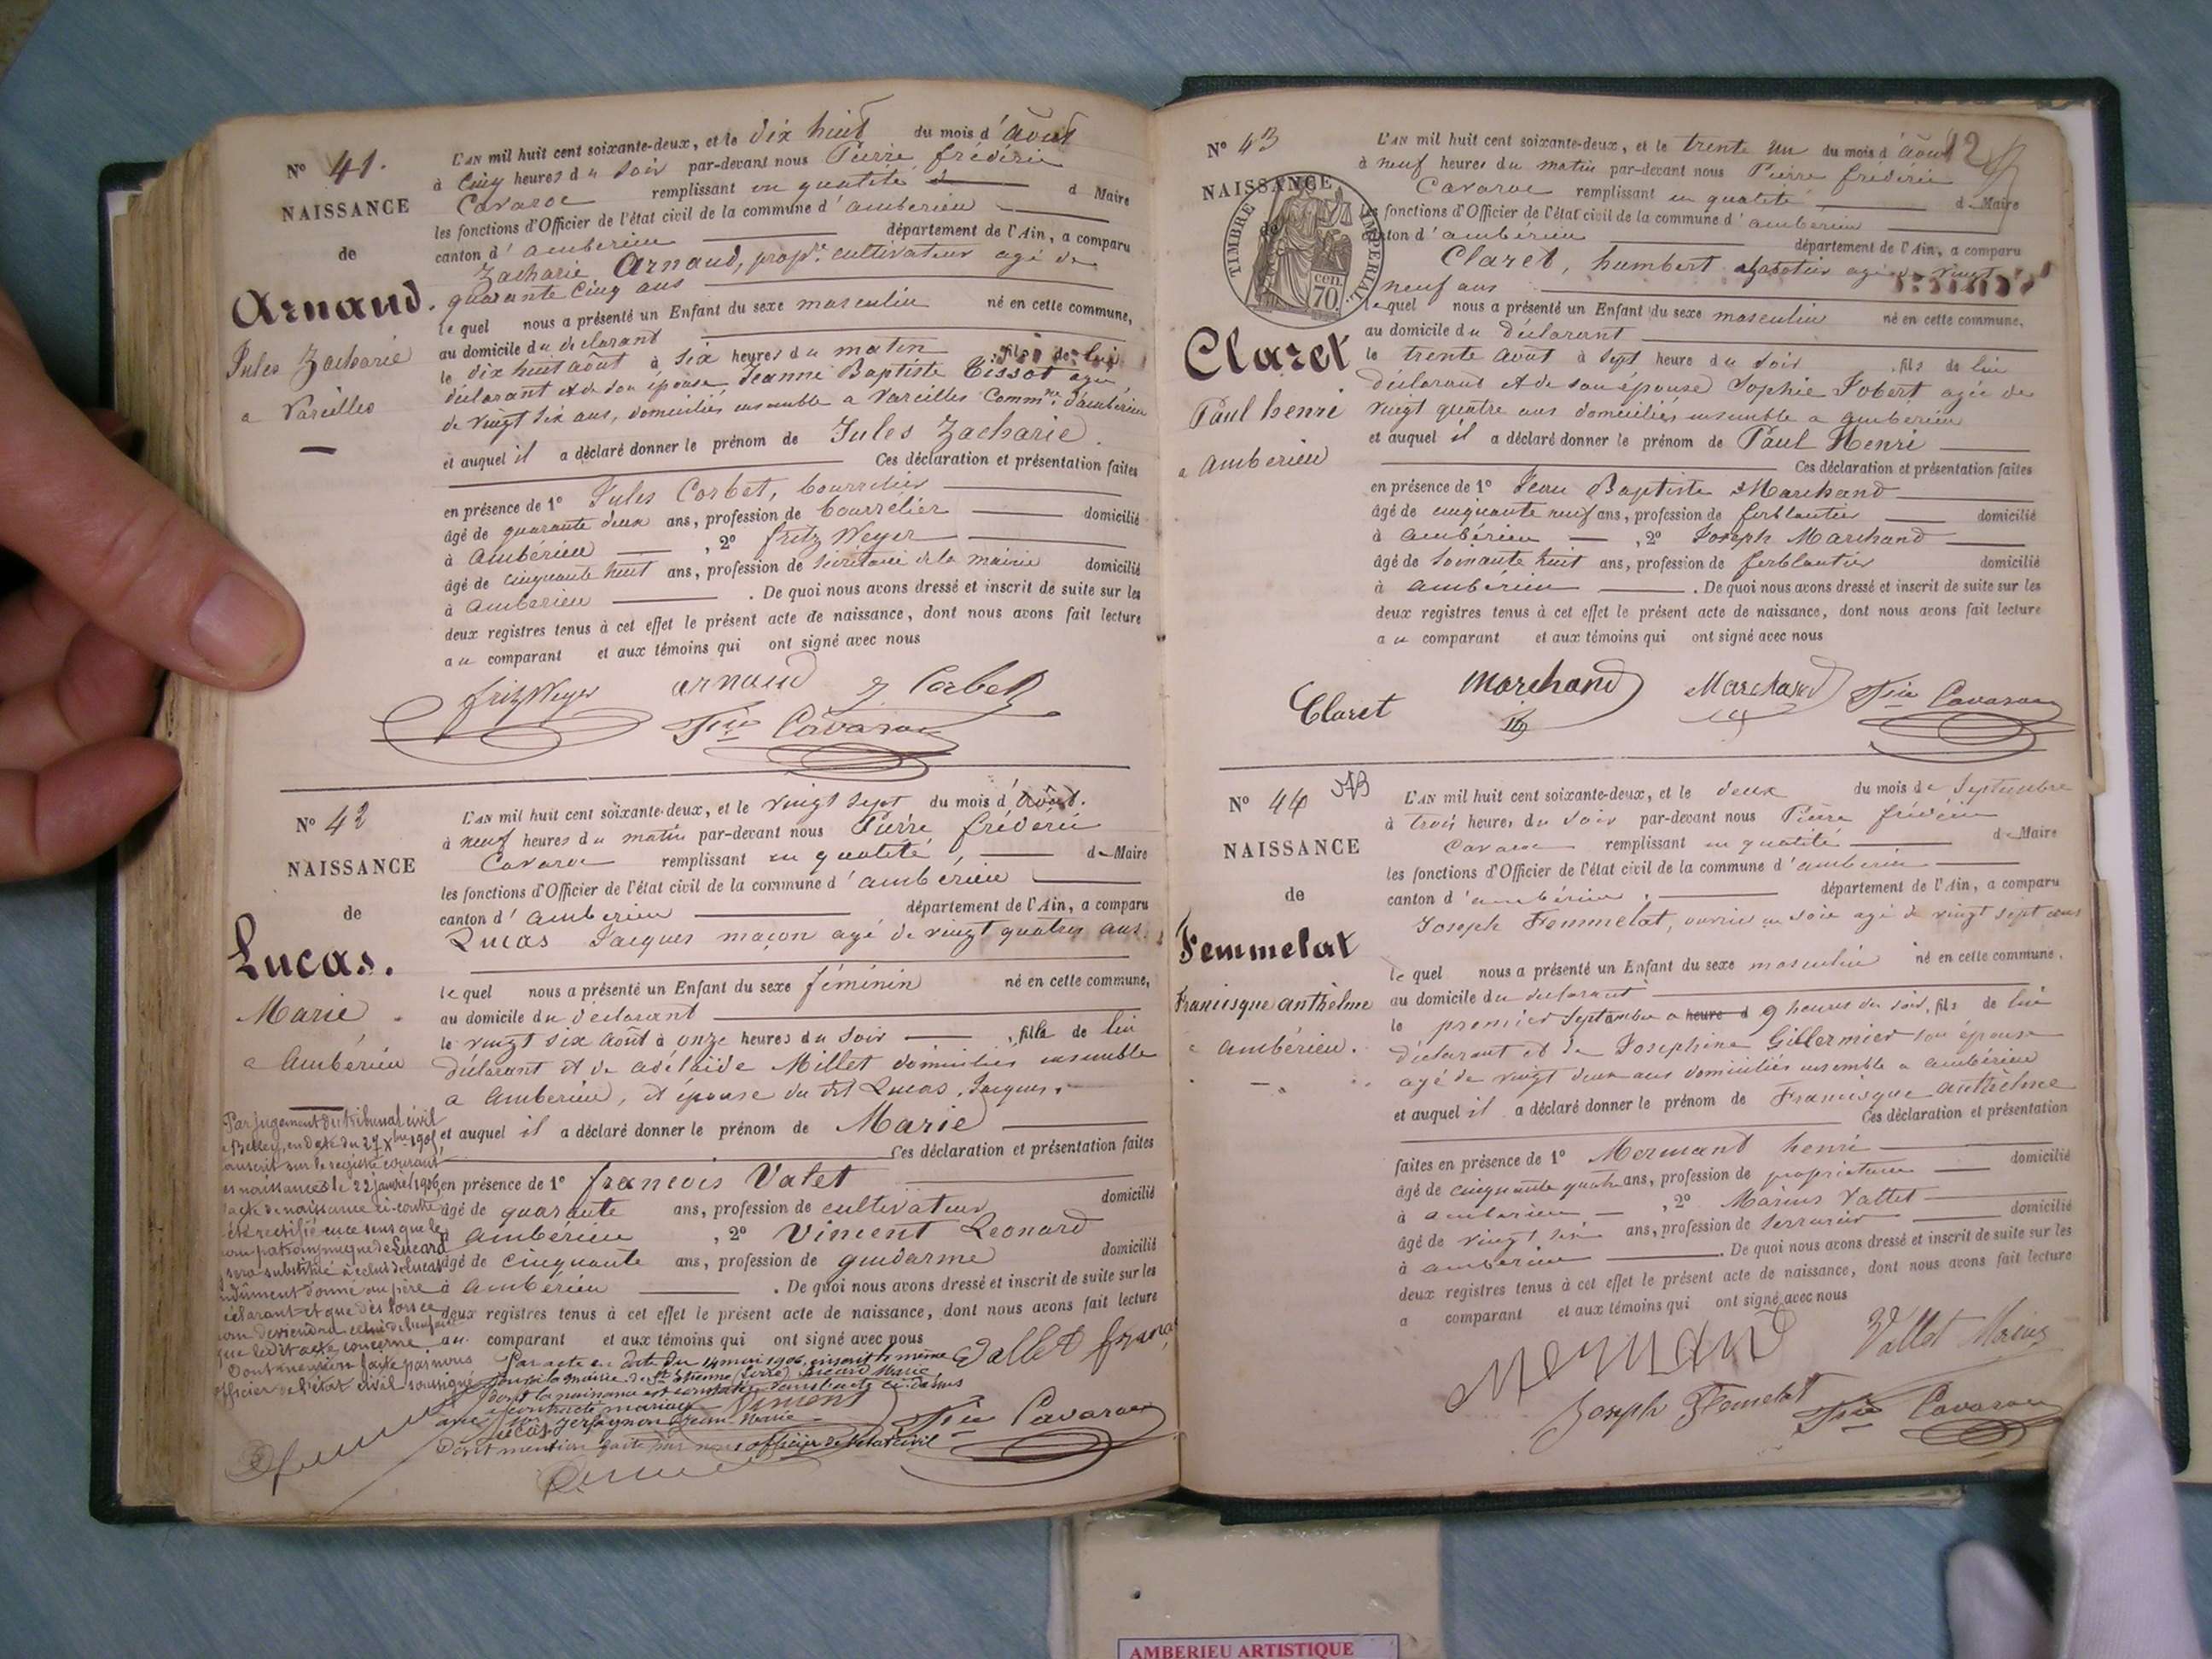 N° 41.
NAISSANCE
de
Arnaud.
Jules Zacharie
a Vareilles
L'AN mil huit cent soixante-deux, et le dix huit du mois d'août
à cinq heures du soir par-devant nous Pierre frédéric
Cavaroc remplissant en qualité d Maire
les fonctions d'Officier de l'état civil de la commune d'ambérieu
canton d'ambérieu département de l'Ain, a comparu
Zacharie Arnaud, propre cultivateur agé de
quarante cinq ans
lequel nous a présenté un Enfant du sexe masculin né en cette commune,
au domicile du déclarant
le dix huit août à six heures du matin fils de lui
déclarant et de son épouse Jeanne Baptiste Tissot agée
de vingt six ans, domiciliés ensemble a Vareilles Commne d'ambérieu
et auquel il a déclaré donner le prénom de Jules Zacharie.
Ces déclaration et présentation faites
en présence de 1° Jules Corbet, bourrelier
âgé de quarante deux ans, profession de bourrelier domicilié
à Ambérieu , 2° fritz Weyer
âgé de cinquante huit ans, profession de secrétaire de la mairie domicilié
à Ambérieu . De quoi nous avons dressé et inscrit de suite sur les
deux registres tenus à cet effet le présent acte de naissance, dont nous avons fait lecture
au comparant et aux témoins qui ont signé avec nous
fritz Weyer arnaud J Corbet
Fric Cavaroc
N° 42
NAISSANCE
de
Lucas.
Marie
a Ambérieu
L'AN mil huit cent soixante-deux, et le vingt sept du mois d'août.
à neuf heures du matin par-devant nous Pierre fréderic
Cavaroc remplissant en qualité de Maire
les fonctions d'Officier de l'état civil de la commune d'ambérieu
canton d'ambérieu département de l'Ain, a comparu
Lucas Jacques maçon agé de vingt quatres ans.
lequel nous a présenté un Enfant du sexe féminin né en cette commune,
au domicile du déclarant
le vingt six août à onze heures du soir , fille de lui
déclarant et de adélaïde Millet domiciliés ensemble
a Ambérieu, et épouse du dit Lucas, Jacques.
et auquel il a déclaré donner le prénom de Marie
Ces déclaration et présentation faites
en présence de 1° francois Valet
âgé de quarante ans, profession de cultivateur domicilié
ambérieu , 2° Viment Leonard
âgé de cinquante ans, profession de gendarme domicilié
à ambérieu . De quoi nous avons dressé et inscrit de suite sur les
deux registres tenus à cet effet le présent acte de naissance, dont nous avons fait lecture
au comparant et aux témoins qui ont signé avec nous
Par jugement du tribunal civil
Belley, en date du 27 Xbre 1905
sur le registre courant
naissances le 22 janvier 1906,
acte de naissance ci-contre
été rectifié en ce sens que le
nom patronymique de Lucard
sera substitué à celui de Lucas
indûment donné au père
déclarant et que dès lors ce
nom deviendra celui de l'enfant
que ledit acte concerne
Dont mention faite par nous
officier de l'état civil soussigné
Par acte en date du 14 mai 1906, inscrit le même
jour à la mairie de St Etienne (Loire) Lucard Marie
dont la naissance est constatée dans l'acte ci-dessus
a contracté mariage
avec Jean Marie
Dont mention faite par nous officier de l'état civil
Vallet
Viment
Lucas
Fric Cavaroc
N° 43
NAISSANCE
de
TIMBRE IMPÉRIAL
70 CEN.
Claret
Paul henri
a Ambérieu
12
L'AN mil huit cent soixante-deux, et le trente un du mois d'août
à neuf heures du matin par-devant nous Pierre fréderic
Cavaroc remplissant en qualité d Maire
les fonctions d'Officier de l'état civil de la commune d'ambérieu
canton d'ambérieu département de l'Ain, a comparu
Claret, humbert sabotier agé de vingt
neuf ans
lequel nous a présenté un Enfant du sexe masculin né en cette commune,
au domicile du déclarant
le trente août à sept heure du soir , fils de lui
déclarant et de son épouse Sophie Jobert agée de
vingt quatre ans domiciliés ensemble a ambérieu
et auquel il a déclaré donner le prénom de Paul Henri
Ces déclaration et présentation faites
en présence de 1° Jean Baptiste Marchand
âgé de cinquante neuf ans, profession de ferblantier domicilié
à ambérieu , 2° Joseph Marchand
âgé de soixante huit ans, profession de ferblantier domicilié
à ambérieu . De quoi nous avons dressé et inscrit de suite sur les
deux registres tenus à cet effet le présent acte de naissance, dont nous avons fait lecture
au comparant et aux témoins qui ont signé avec nous
Claret Marchand Marchand Fric Cavaroc
N° 44
NAISSANCE
de
Femmelat
Francisque anthelme
a ambérieu.
L'AN mil huit cent soixante-deux, et le deux du mois de Septembre
à trois heures du soir par-devant nous Pierre fréderic
Cavaroc remplissant en qualité de Maire
les fonctions d'Officier de l'état civil de la commune d'ambérieu
canton d'ambérieu. département de l'Ain, a comparu
Joseph Femmelat, ouvrier en soie agé de vingt sept ans
lequel nous a présenté un Enfant du sexe masculin né en cette commune,
au domicile du déclarant
le premier Septembre a heure d 9 heures du soir, fils de lui
déclarant et de Josephine Gillermier son épouse
agé de vingt deux ans domiciliés ensemble a ambérieu
et auquel il a déclaré donner le prénom de Francisque anthelme
Ces déclaration et présentation
faites en présence de 1° Mermand henri
âgé de cinquante quatre ans, profession de propriétaire domicilié
à ambérieu , 2° Marius Vallet
âgé de vingt six ans, profession de serrurier domicilié
à ambérieu . De quoi nous avons dressé et inscrit de suite sur les
deux registres tenus à cet effet le présent acte de naissance, dont nous avons fait lecture
a comparant et aux témoins qui ont signé avec nous
Mermand Vallet Marius
Joseph Femelat Fric Cavaroc
AMBERIEU ARTISTIQUE